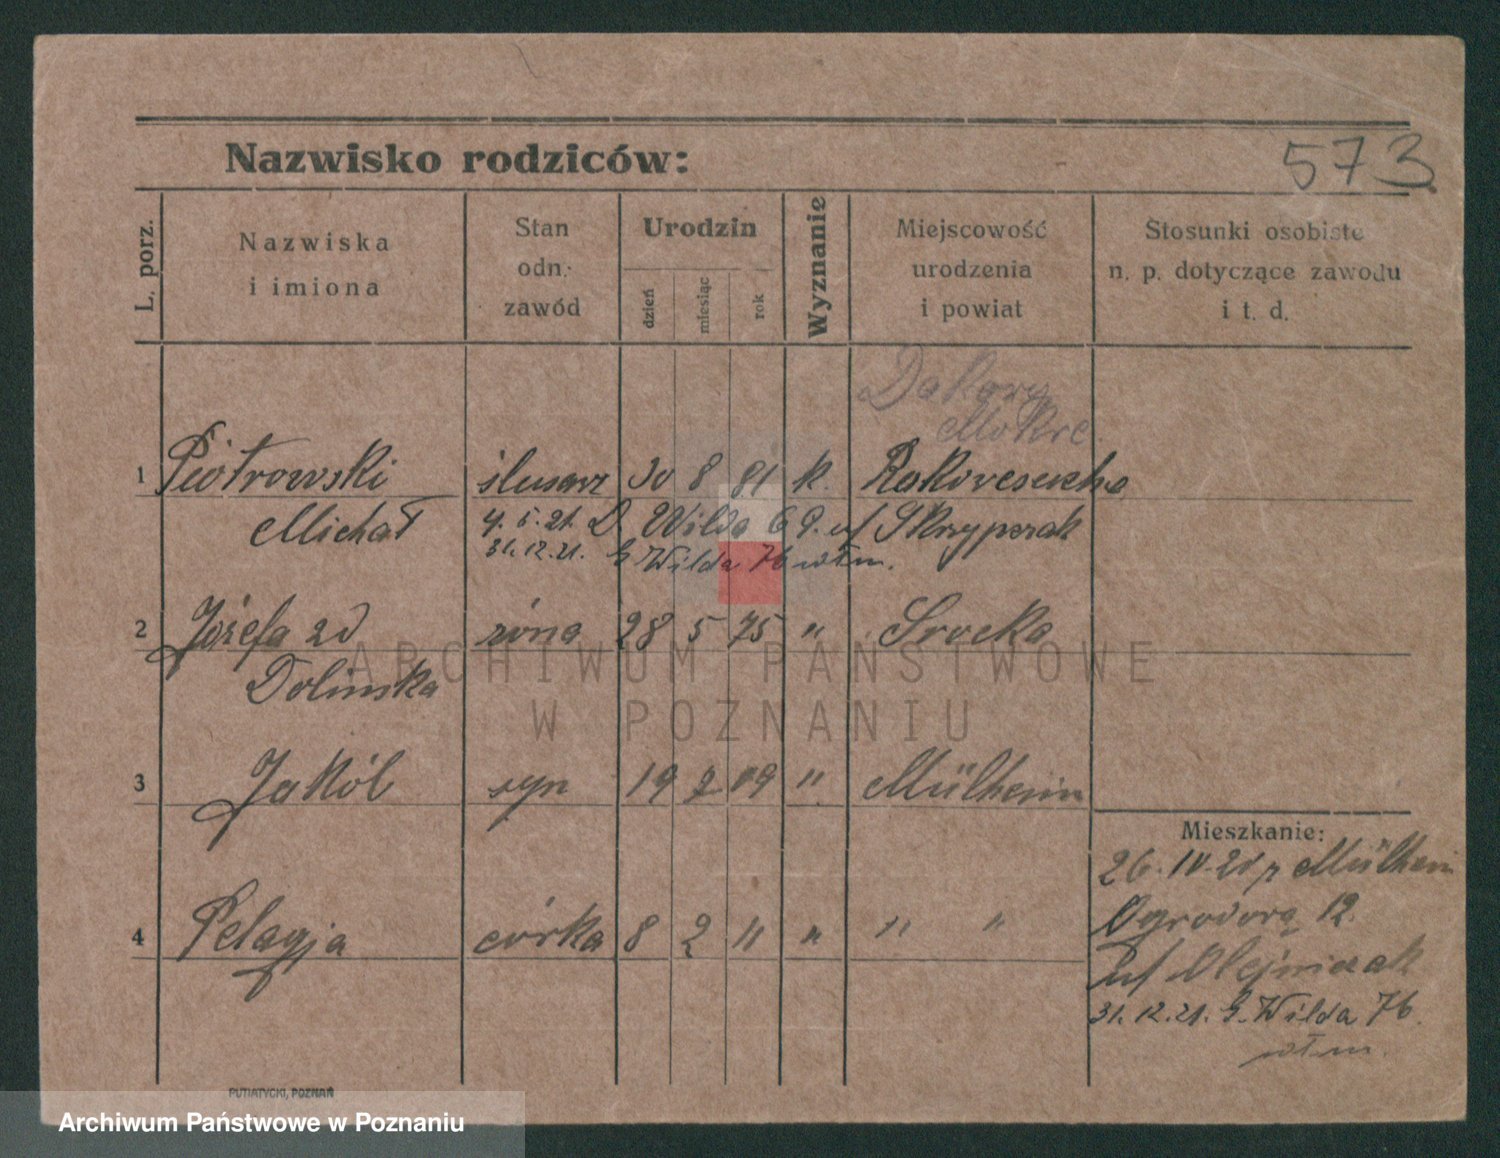 573
Nazwisko rodziców:
L. porz.
Nazwiska
i imiona
Stan
odn.
zawód
Urodzin
dzień
miesiąc
rok
Wyznanie
Miejscowość
urodzenia
i powiat
Stosunki osobiste
n. p. dotyczące zawodu
i t. d.
Dakowy
Mokre
1 Piotrowski ślusarz 30 8 81 k.
Michał 4. 5. 21. D. Wilda 69. u/ Skrzypczak
31.12.21. G. Wilda 76 wł.m.
2 Józefa zd żona 28 5 75 " Srocko
Dolinska
3 Jakób syn 19 2 09 " Mülheim
4 Pelagja córka 8 2 11 " " "
Mieszkanie:
26. IV. 21 z Mülheim
Ogrodową 12.
u/ Olejniczak
31.12.21. G. Wilda 76.
wł.m.
PUTIATYCKI, POZNAŃ
ARCHIWUM PAŃSTWOWE
W POZNANIU
Archiwum Państwowe w Poznaniu